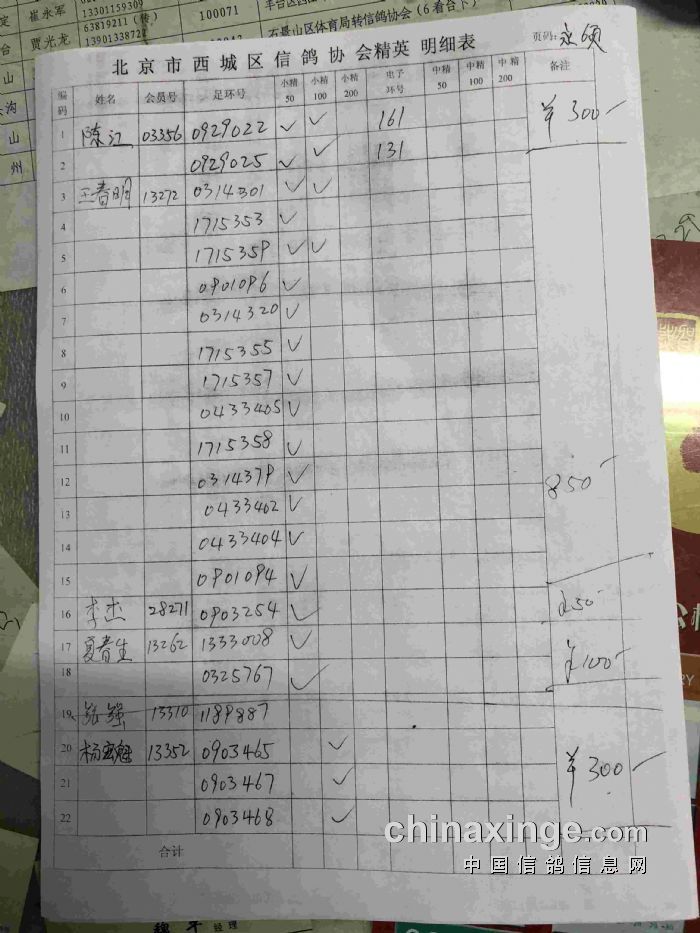 崔永军 13301159309
63819211 (传)
贾光龙 13901338722
100071
丰台区西
100043
石景山区体育局转信鸽协会（6看台下）
定
台
山
沟
山
州
北京市西城区信鸽协会精英 明细表
页码：永硕
编码 姓名 会员号 足环号 小精50 小精100 小精200 电子环号 中精50 中精100 中精200 备注
1 陈江 03356 0929022 ✓ ✓ 161 ¥300-
2 0929025 ✓ ✓ 131
3 王春明 13272 0314301 ✓ ✓
4 1715353 ✓
5 1715359 ✓ ✓
6 0901096 ✓
7 0314320 ✓
8 1715355 ✓
9 1715357 ✓
10 0433405 ✓
11 1715358 ✓
12 0314379 ✓
850-
13 0433402 ✓
14 0433404 ✓
15 0901094 ✓
16 李杰 28271 0903254 ✓ ¥50-
17 夏春生 13262 1333008 ✓ ¥100-
18 0325767 ✓
19 张强 13310 1189887
20 杨宝魁 13352 0903465 ✓ ¥300-
21 0903467 ✓
22 0903468 ✓
合计
chinaxinge.com
中国信鸽信息网
经理